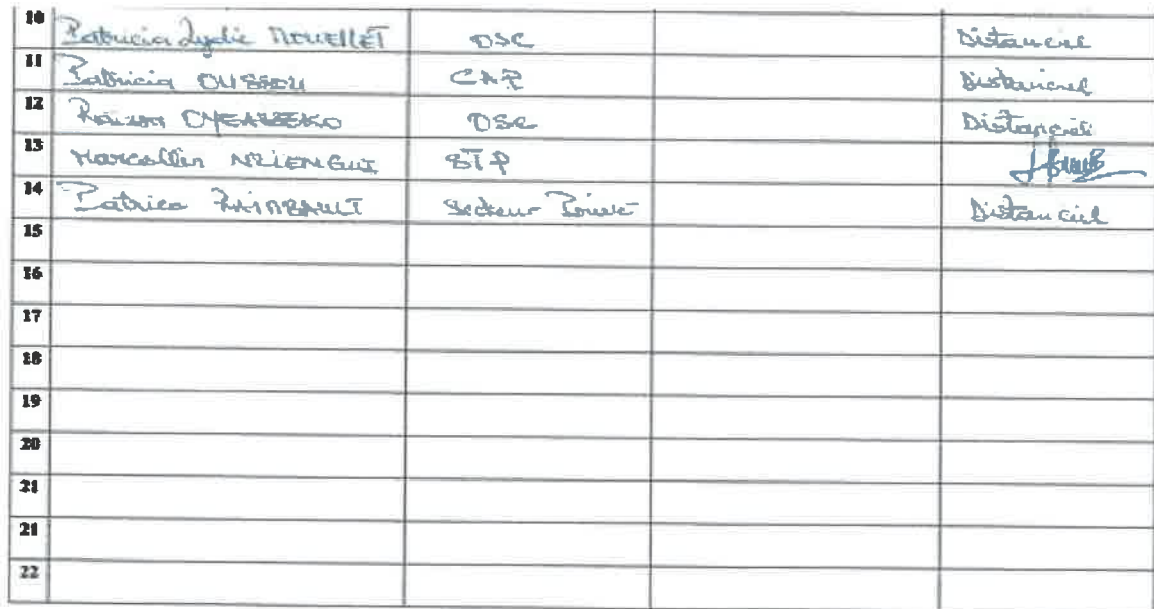 10 Patricia Lydie OSC Distanciel
11 Patricia CAP Distanciel
12 OSC Distanciel
13 Marcellin NZIENGUI STP
14 Patrice RAIMBAULT Secteur Privé Distanciel
15
16
17
18
19
20
21
21
22